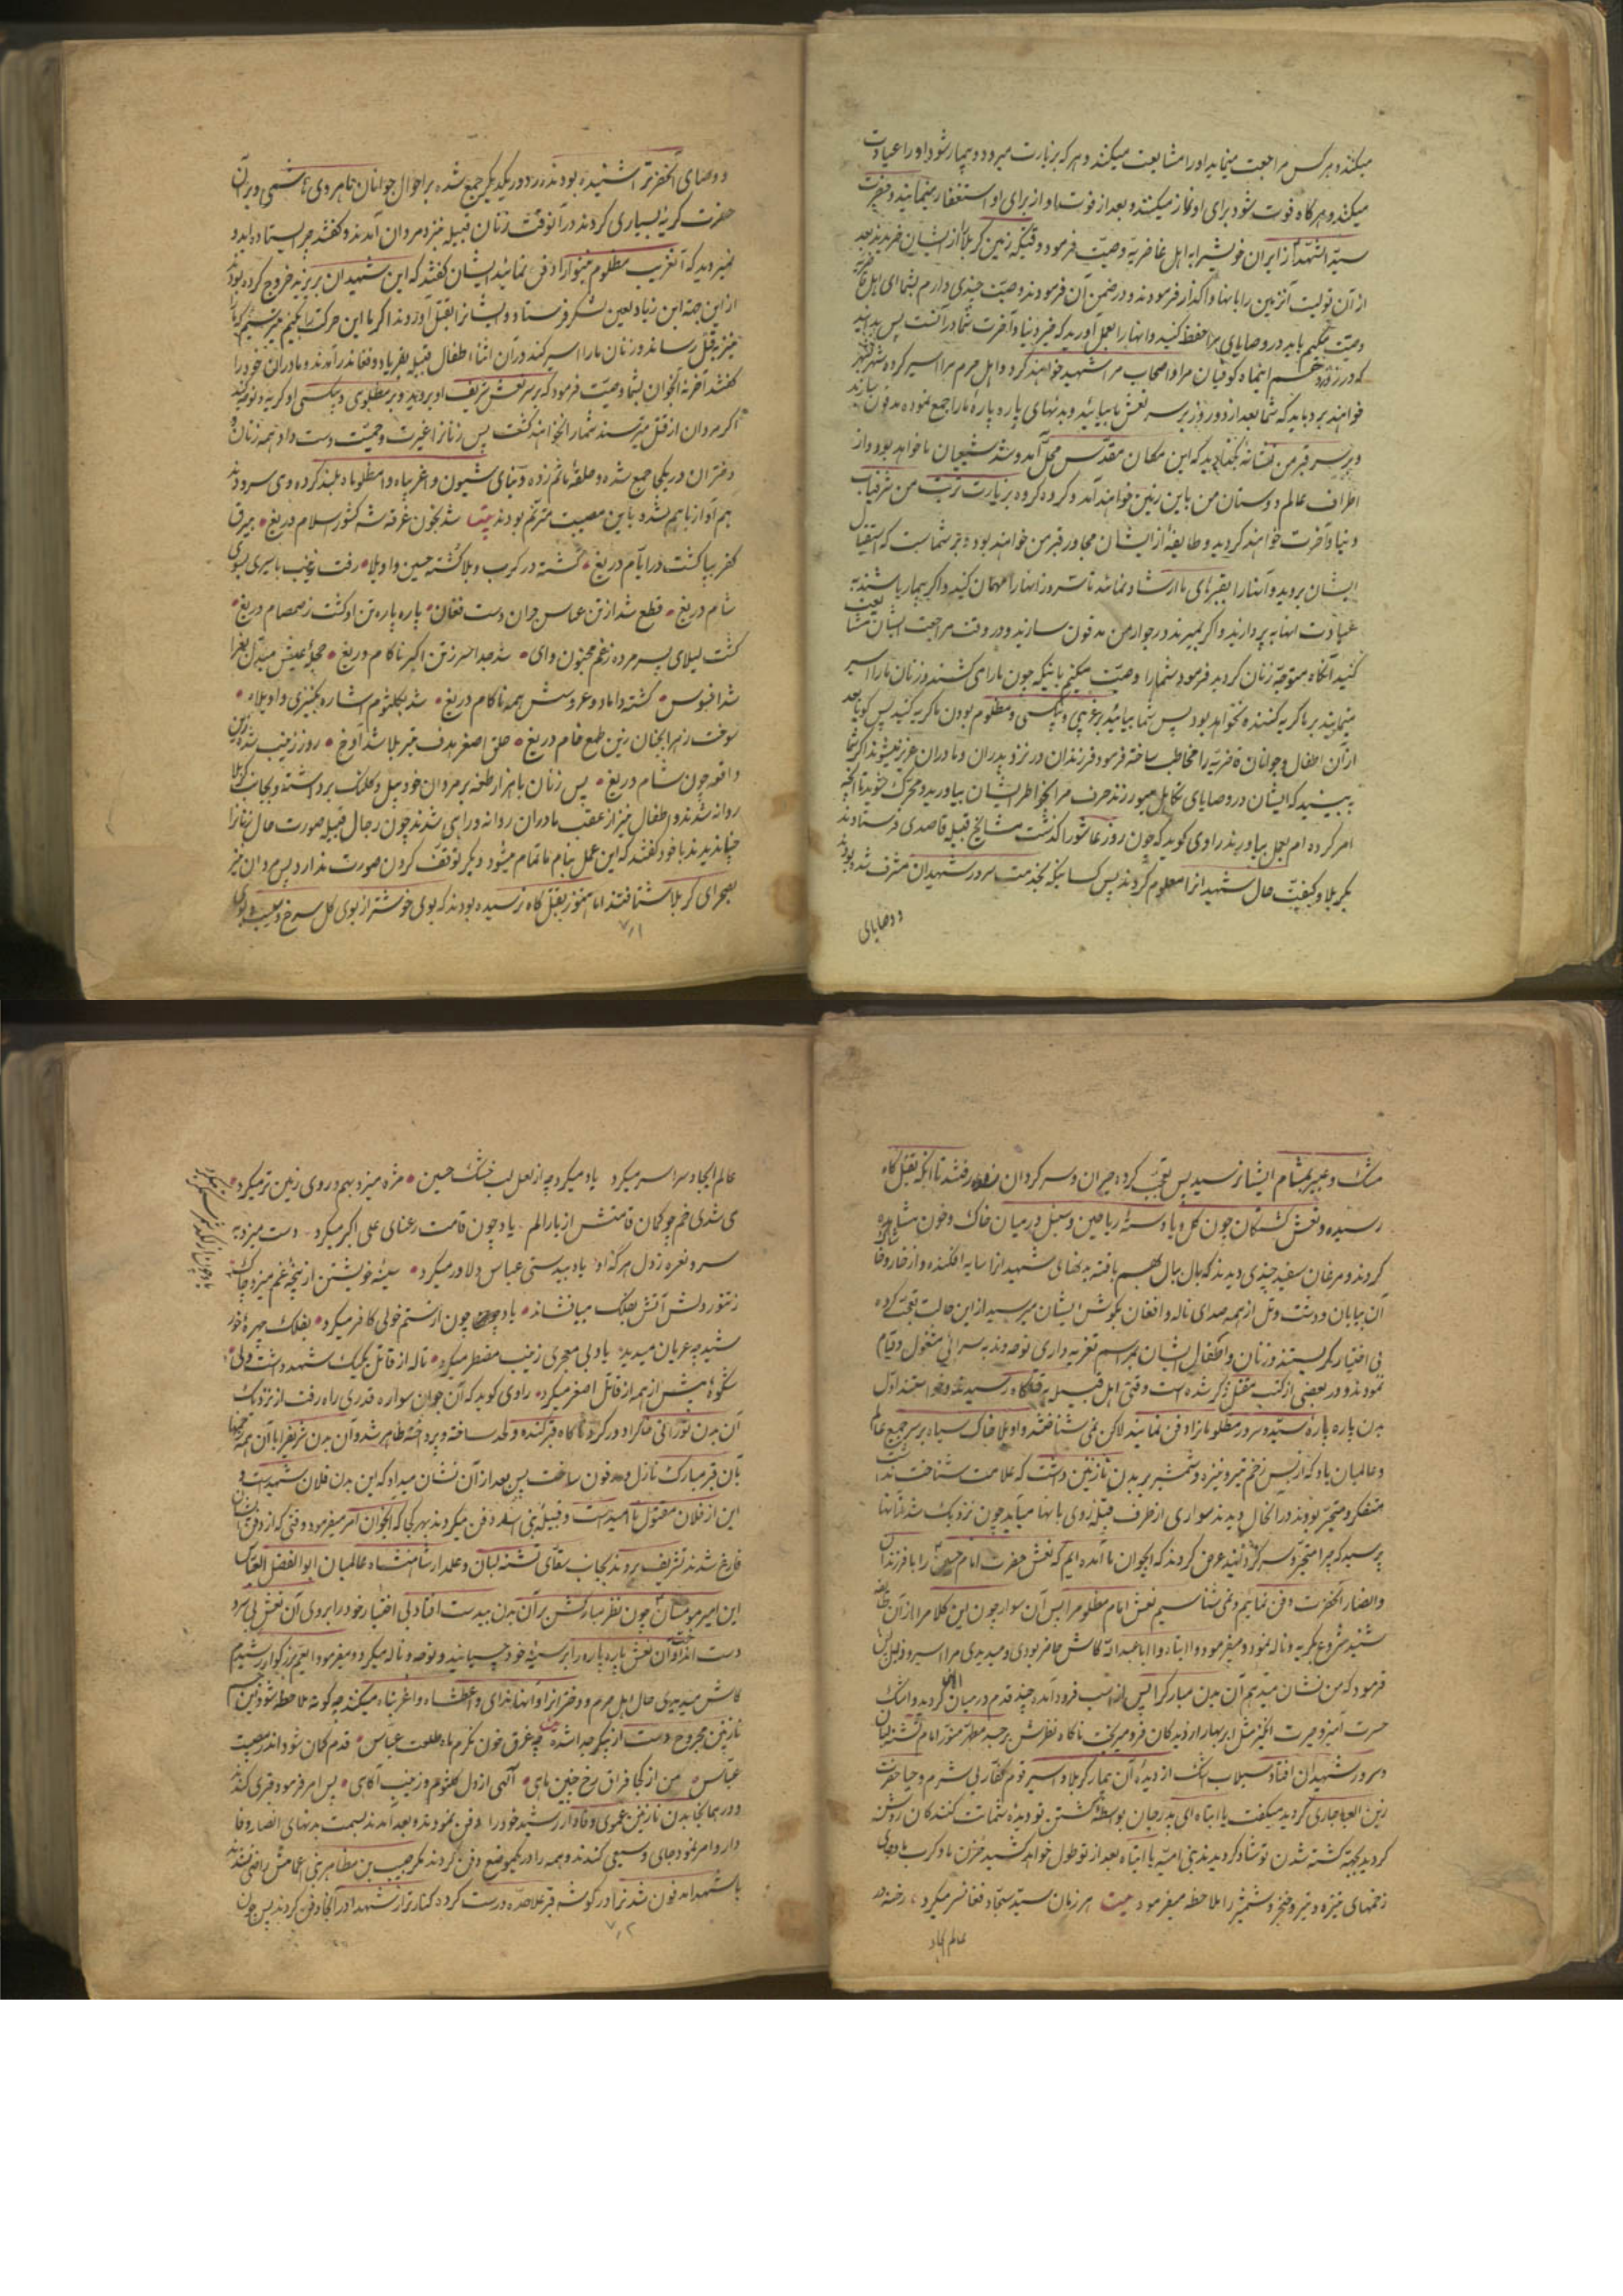 میکنند و هر کس مراجعت مینماید او را مشایعت میکنند و هر که بزیارت میرود و بیمار شود او را عیادت
میکنند و هر گاه فوت شود برای او نماز میکنند و بعد از فوت او از برای او استغفار مینمایند و حضرت
سید الشهدا از ایران خویش را به اهل غاضریه وصیت فرمود وقتیکه زمین کربلا را از ایشان خریدند بعد
از آن تولیت آنزمین را بانها واگذار فرمودند و در ضمن آن فرمودند وصیت چندی دارم بشما ای اهل غاضریه
وصیت میکنم باید در وصایای مرا حفظ کنید و انها را بعمل آورید که خیر دنیا و آخرت شما در آنست پس بدانید
که در روز دهم اینماه کوفیان مرا و اصحاب مرا شهید خواهند کرد و اهل حرم مرا اسیر کرده شهر بشهر
خواهند برد باید که شما بعد از دو روز بر سر نعش ما بیائید و بدنهای پاره پارهٔ ما را جمع نموده مدفون سازید
و بر سر قبر من نشانه بگذارید که این مکان مقدس محل آمد و شد شیعیان ما خواهد بود و از
اطراف عالم دوستان من باین زمین خواهند آمد و گروه گروه بزیارت تربت من شرفیاب
دنیا و آخرت خواهند گردید و طایفهٔ از ایشان مجاور قبر من خواهند بود و بر شماست که استقبال
ایشان بروید و آنها را بقبرهای ما ارشاد نمائید تا سه روز انها را مهمان کنید و اگر بیمار باشند به
عیادت انها به پردازید و اگر بمیرند در جوار من مدفون سازید و در وقت مراجعت ایشان مشایعت
کنید آنگاه متوجه زنان گردید فرمود شما را وصیت میکنم باینکه چون ما را می کشند و زنان ما را اسیر
مینمایند بر ما گریه کننده نخواهد بود پس شما بیائید بر غریبی و بیکسی و مظلوم بودن ما گریه کنید پس گویا بعد
از آن اطفال و جوانان غاضریه را مخاطب ساخته فرمود فرزندان در نزد پدران و مادران عزیز میشوند اگر شما
به بینید که ایشان در وصایای من تکاهل میورزند حرف مرا بخاطر ایشان بیاورید و محرک شوید تا انچه
امر کرده ام بعمل بیاورند راوی گوید که چون روز عاشورا گذشت مشایخ قبیله قاصدی فرستادند
بکربلا و کیفیت حال شهیدانرا معلوم کردند پس کسانیکه بخدمت سرور شهیدان مشرف شده بودند
و وصایای
و وصایای آنحضرترا شنیده بودند در دور یکدیگر جمع شده بر احوال جوانان ماهروی هاشمی و بر آن
حضرت گریهٔ بسیاری کردند در آنوقت زنان قبیله نیز نزد مردان آمدند و گفتند چرا ایستاده اید و
نمیروید که آنغریب مظلوم بینوا را دفن نمائید ایشان گفتند که این شهیدان بر یزید خروج کرده بودند
از این جهة ابن زیاد لعین لشکر فرستاد و ایشانرا بقتل آوردند اگر ما این حرکت را بکنیم میترسیم که ما را
نیز بقتل رساند و زنان ما را اسیر کند در آن اثنا اطفال قبیله بفریاد و فغان در آمدند و مادران خود را
گفتند آخر نه آنجوان بشما وصیت فرمود که بر سر نعش شریف او بروید و بر مظلومی و بیکسی او گریه و نوحه کنید
اگر مردان از قتل میترسند شما را نخواهند کشت پس زنانرا غیرت و حمیت دست داد همه زنان و
دختران در یکجا جمع شده و حلقهٔ ماتم زده و بنای شیون و اغریباه و امظلوماه بلند کرده و می سرودند
هم آواز باهم شده باین مصیبت مترنم بودند بیت شد بخون غرقه شه کشور اسلام دریغ بیرق
کفر بپا گشت در ایام دریغ گشته در کرب و بلا کشته حسین واویلا رفت زینب باسیری بسوی
شام دریغ قطع شد از تن عباس جوان دست فغان پاره پاره تن او گشت ز صمصام دریغ
گشت لیلای پسر مرده ز غم مجنون وای شد جدا سر ز تن اکبر ناکام دریغ حجلهٔ عیش مبدل بعزا
شد افسوس کشته داماد و عروسش همه ناکام دریغ شد بکلثوم اشاره بکنیزی واویلاه
سوخت زهرا بجنان زین طمع خام دریغ حلق اصغر هدف تیر بلا شد آوخ روز زینب شده زین
واقعه چون شام دریغ پس زنان با هزار طعنه بر مردان خود بیل و کلنگ برداشته و بجانب کربلا
روانه شدند و اطفال نیز از عقب مادران روانه و راهی شدند چون رجال قبیله صورت حال زنانرا
چنان دیدند با خود گفتند که این عمل بنام ما تمام میشود و دیگر توقف کردن صورت ندارد پس مردان نیز
بصحرای کربلا شتافتند اما هنوز بقتلگاه نرسیده بودند که بوئی خوشتر از بوی گل سرخ و سیب و بوی
۷۱
مشک و عبیر بمشام ایشان رسید پس تعجب کرده حیران و سرگردان میرفتند تا آنکه بقتلگاه
رسیده و نعش کشتگان چون گل و یا دستهٔ ریاحین و سنبل در میان خاک و خون مشاهده
کردند و مرغان سفید چندی دیدند که بال ببال هم بافته بدنهای شهیدانرا سایه افکنده و از خار و خاشاک
آن بیابان و دشت و تل از همه صدای ناله و افغان بگوش ایشان میرسید از این حالت تعجب کرده
بی اختیار گریستند و زنان و اطفال ایشان بمراسم تعزیه داری نوحه و ندبه سرائی مشغول و قیام
نمودند و در بعضی از کتب مقتل ذکر شده است وقتی اهل قبیله به قتلگاه رسیدند و خواستند اول
بدن پاره پارهٔ سید و سرور مظلومانرا دفن نمایند لاکن نمی شناختند واویلا خاک سیاه بر سر جمیع عالم
و عالمیان باد که از بس زخم تیر و نیزه و شمشیر بر بدن نازنین داشت که علامت شناخت نداشت
متفکر و متحیر بودند در آنحال دیدند سواری از طرف قبله روی بانها میآید چون نزدیک شد بآنها
پرسید که چرا متحیر و سرگردانید عرض کردند که ایجوان ما آمده ایم که نعش حضرت امام حسین را با فرزندان
و انصار آنحضرت دفن نمائیم و نمی شناسیم نعش امام مظلوم را پس آن سوار چون این کلام را از آن طایفه
شنید شروع بگریه و ناله نمود و میفرمود وا ابتاه وا ابا عبد الله کاش حاضر بودی و میدیدی مرا اسیر و ذلیل پس
فرمود که من نشان میدهم آن بدن مبارک را پس از اسب فرود آمده چند قدم در میان گردید و اشک
حسرت آمیز و عبرت انگیز مثل ابر بهار از دیدگان فرو میریخت ناگاه نظرش بر جسد مطهر منور امام تشنه لبان
و سرور شهیدان افتاد سیلاب اشک از دیدهٔ آن بیمار کربلا و اسیر قوم کفار بی شرم و حیا حضرت
زین العبا جاری گردید میگفت یا ابتاه ای پدر جان بواسطهٔ کشتن تو دیدهٔ شماتت کنندگان روشن
گردید بجهة کشته شدن تو شاد گردیدند بنی امیه یا ابتاه بعد از تو طول خواهد کشید حزن ما و کرب ما و حال
زخمهای نیزه و تیر و خنجر و شمشیر را ملاحظه میفرمود بیت هر زمان سید سجاد فغان سر میکرد رخنه در
عالم ایجاد
عالم ایجاد سراسر میکرد یاد میکرد چه از لعل لب خشک حسین مژه میزد بهم و روی زمین تر میکرد
می شدی خم چو کمان قامتش از بار الم یاد چون قامت رعنای علی اکبر میکرد دست میزد به
سر و نعره ز دل هر که او یاد بیدستی عباس دلاور میکرد سینهٔ خویشتن از پنجهٔ غم میزد چاک
ز تنور دلش آتش بفلک میافشاند یاد چون از ستم خولی کافر میکرد بفلک چهرهٔ خور
شید چه عریان میدید یاد بی معجری زینب مضطر میکرد ناله از قاتل یک یک شهدا داشت ولی
شکوهٔ بیش از همه از قاتل اصغر میکرد راوی گوید که آن جوان سواره قدری راه رفت از نزدیک
آن بدن نورانی خاک را دور کرد ناگاه قبر کنده و لحد ساخته و پرداخته ظاهر شد و آن بدن شریف را با آن همه زخمها
بآن قبر مبارک نازل و مدفون ساخت پس بعد از آن نشان میداد که این بدن فلان شهید است و
این از فلان مقتول ناامید است و قبیلهٔ بنی اسد دفن میکردند بهر یکی که آنجوان امر میفرمود وقتی که از دفن ایشان
فارغ شدند تشریف بردند بجانب سقای تشنه لبان و علمدار شاهنشاه عالمیان ابوالفضل العباس
این امیر مومنان چون نظر مبارکش بر آن بدن بیدست افتاد بی اختیار خود را بروی آن نعش بی سر و
دست انداخت آن نعش پاره پاره را بر سینهٔ خود چسبانید و نوحه و ناله میکرد و میفرمود ایعم بزرگوار رشیدم
کاش میدیدی حال اهل حرم و دختران را و آنها ندای واعطشاه و اغربتاه میکنند چه گونه ملاحظه شود این جسم
نازنین مجروح دست از پیکر جدا شده بیت چه غرق خون نگرم ماه طلعت عباس قدم کمان شود اندر مصیبت
عباس من از کجا فراق رخ چنین ماهی آلهی از دل کلثوم و زینب آگاهی پس امر فرمود قبری کندند
و در همانجا بدن نازنین عموی وفادار رشید خود را دفن نمودند و بعد آمدند بسمت بدنهای انصار وفا
دار و امر نمود جای وسیعی کندند و همه را در یکموضع دفن کردند مگر حبیب بن مظاهر بنی اعمامش راضی نشدند
با شهدا مدفون شد او را در گوشه قبر علاحده درست کرده کنارتر از شهدا در آنجا دفن کردند پس چون
۷۲